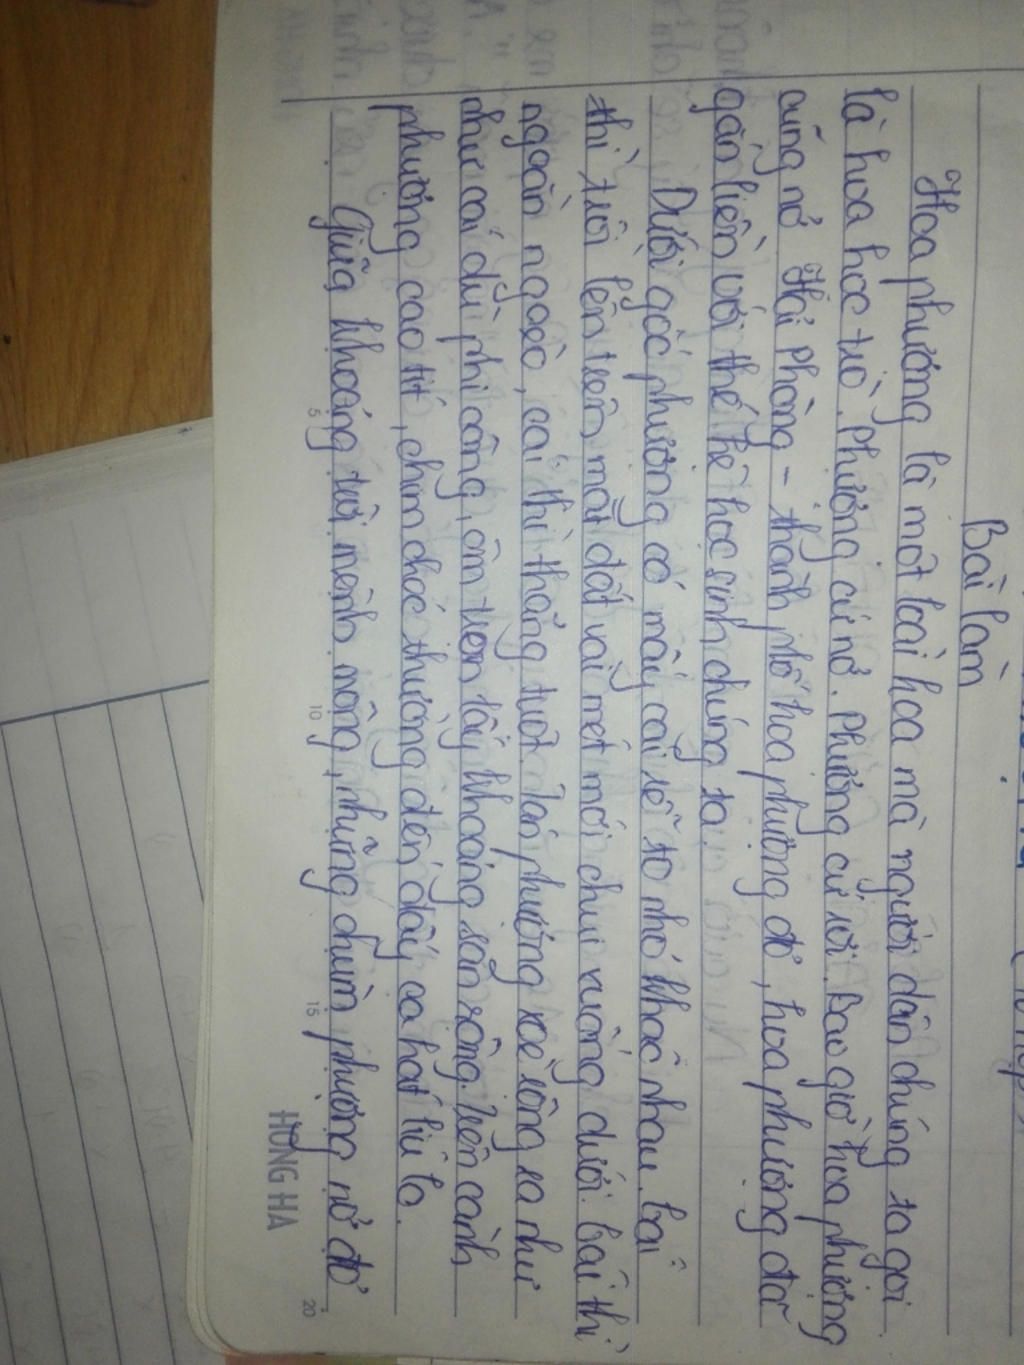 Bài làm
Hoa phượng là một loài hoa mà người dân chúng ta gọi
là hoa học trò. Phượng cứ nở. Phượng cứ rơi. Bao giờ hoa phượng
cũng nở Hải Phòng - thành phố hoa phượng đỏ, hoa phượng đã
gắn liền với thế hệ học sinh chúng ta.
Dưới gốc phượng có mấy cái rễ to nhỏ khác nhau. Cái
thì trồi lên trên mặt đất vài mét mới chui xuống dưới. Cái thì
ngoằn ngoèo, cái thì thẳng tuột. Tán phượng xoè rộng ra như
như cái dù phi công, ôm trọn lấy khoảng sân rộng. Trên cành
phượng cao tít, chim chóc thường đến đây ca hát líu lo.
Giữa khoảng trời mênh mông, những chùm phượng nở đỏ
5
10
15
20
HONG HA